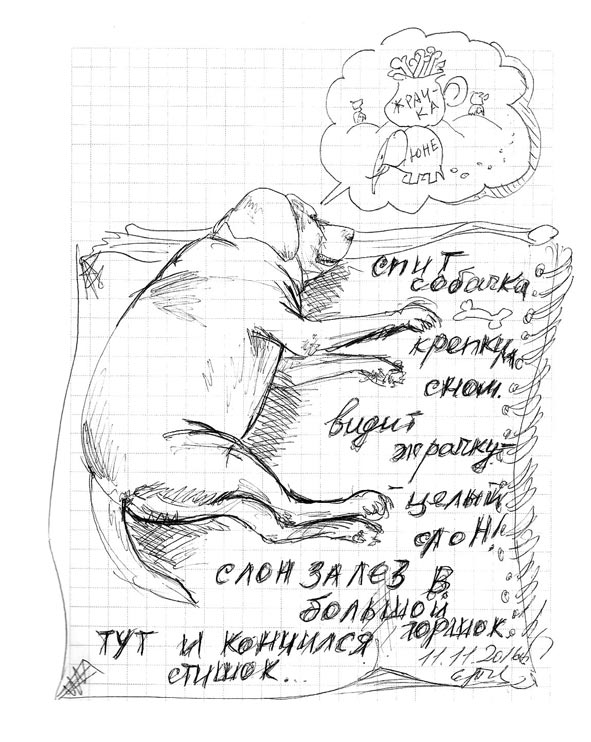 ЖРАЧ-
КА
ЮНЕ
спит
собачка
крепким
сном.
видит
жрачку-
-целый
слон!
СЛОН ЗАЛЕЗ В
большой
горшок.
ТУТ И КОНЧИЛСЯ
СТИШОК...